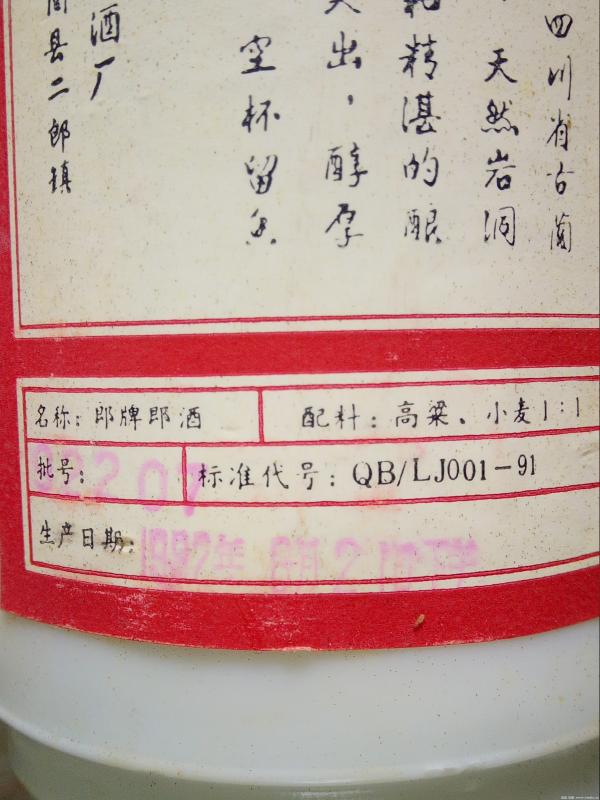 四川省古蔺
天然岩洞
精湛的酿
出，醇厚
空杯留香
酒厂
蔺县二郎镇
名称：郎牌郎酒
配料：高粱、小麦1:1
批号：
标准代号：QB/LJ001-91
生产日期：1992年8月2